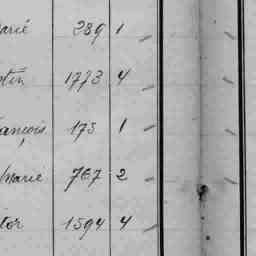 arie 289 1
tin 1773 4
ançois 173 1
Marie 767 2
tor 1594 4